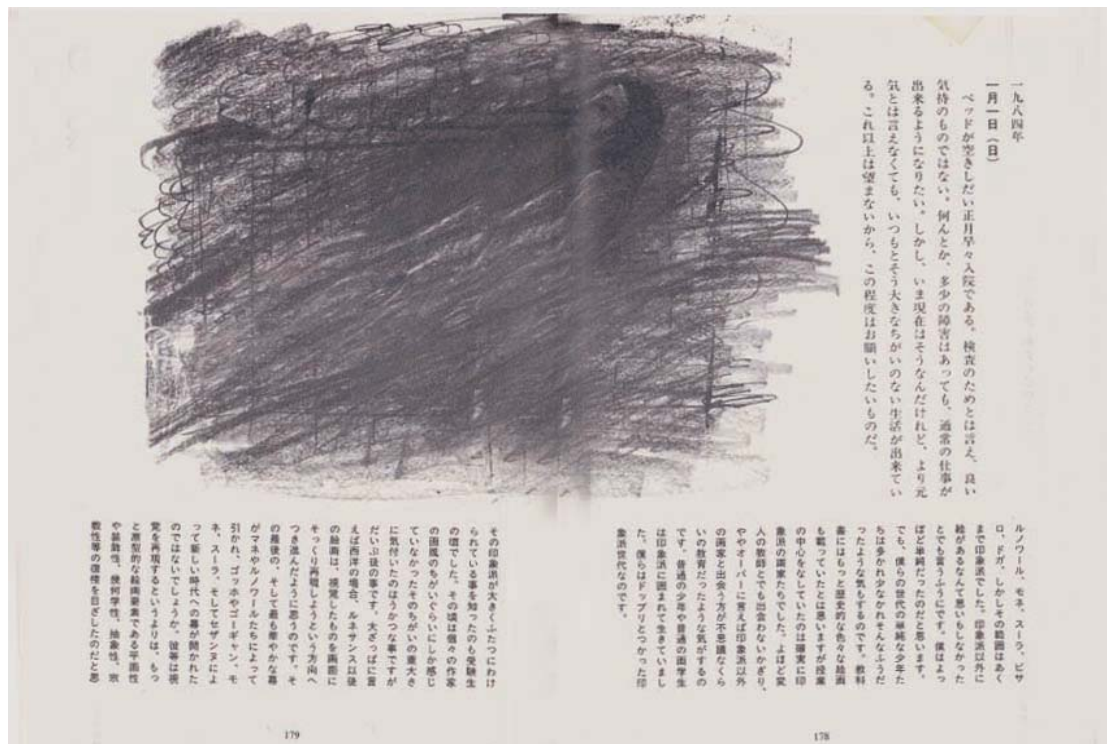 一九八四年
一月一日（日）
ベッドが空きしだい正月早々入院である。検査のためとは言え、良い
気持のものではない。何んとか、多少の障害はあっても、通常の仕事が
出来るようになりたい。しかし、いま現在はそうなんだけれど、より元
気とは言えなくても、いつもとそう大きなちがいのない生活が出来てい
る。これ以上は望まないから、この程度はお願いしたいものだ。
ルノワール、モネ、スーラ、ピサ
ロ、ドガ、しかしその範囲はあく
まで印象派でした。印象派以外に
絵があるなんて思いもしなかった
とでも言うふうにです。僕はよっ
ぽど単純だったのだと思います。
でも、僕らの世代の単純な少年た
ちは多かれ少なかれそんなふうだ
ったような気もするのです。教科
書にはもっと歴史的な色々な絵画
も載っていたとは思いますが授業
の中心をなしていたのは確実に印
象派の画家たちでした。よほど変
人の教師とでも出会わないかぎり、
ややオーバーに言えば印象派以外
の画家と出会う方が不思議なくら
いの教育だったような気がするの
です。普通の少年や普通の画学生
は印象派に囲まれて生きていまし
た。僕らはドップリとつかった印
象派世代なのです。
178
その印象派が大きくふたつにわけ
られている事を知ったのも受験生
の頃でした。その頃は個々の作家
の画風のちがいぐらいにしか感じ
ていなかったそのちがいの重大さ
に気付いたのはうかつな事ですが
だいぶ後の事です。大ざっぱに言
えば西洋の場合、ルネサンス以後
の絵画は、視覚したものを画面に
そっくり再現しようという方向へ
つき進んだように思うのです。そ
の最後の、そして最も華やかな幕
がマネやルノワールたちによって
引かれ、ゴッホやゴーギャン、モ
ネ、スーラ、そしてセザンヌによ
って新しい時代への幕が開かれた
のではないでしょうか。彼等は視
覚を再現するというよりは、もっ
と原型的な絵画要素である平面性
や装飾性、幾何学性、抽象性、宗
教性等の復権を目ざしたのだと思
179